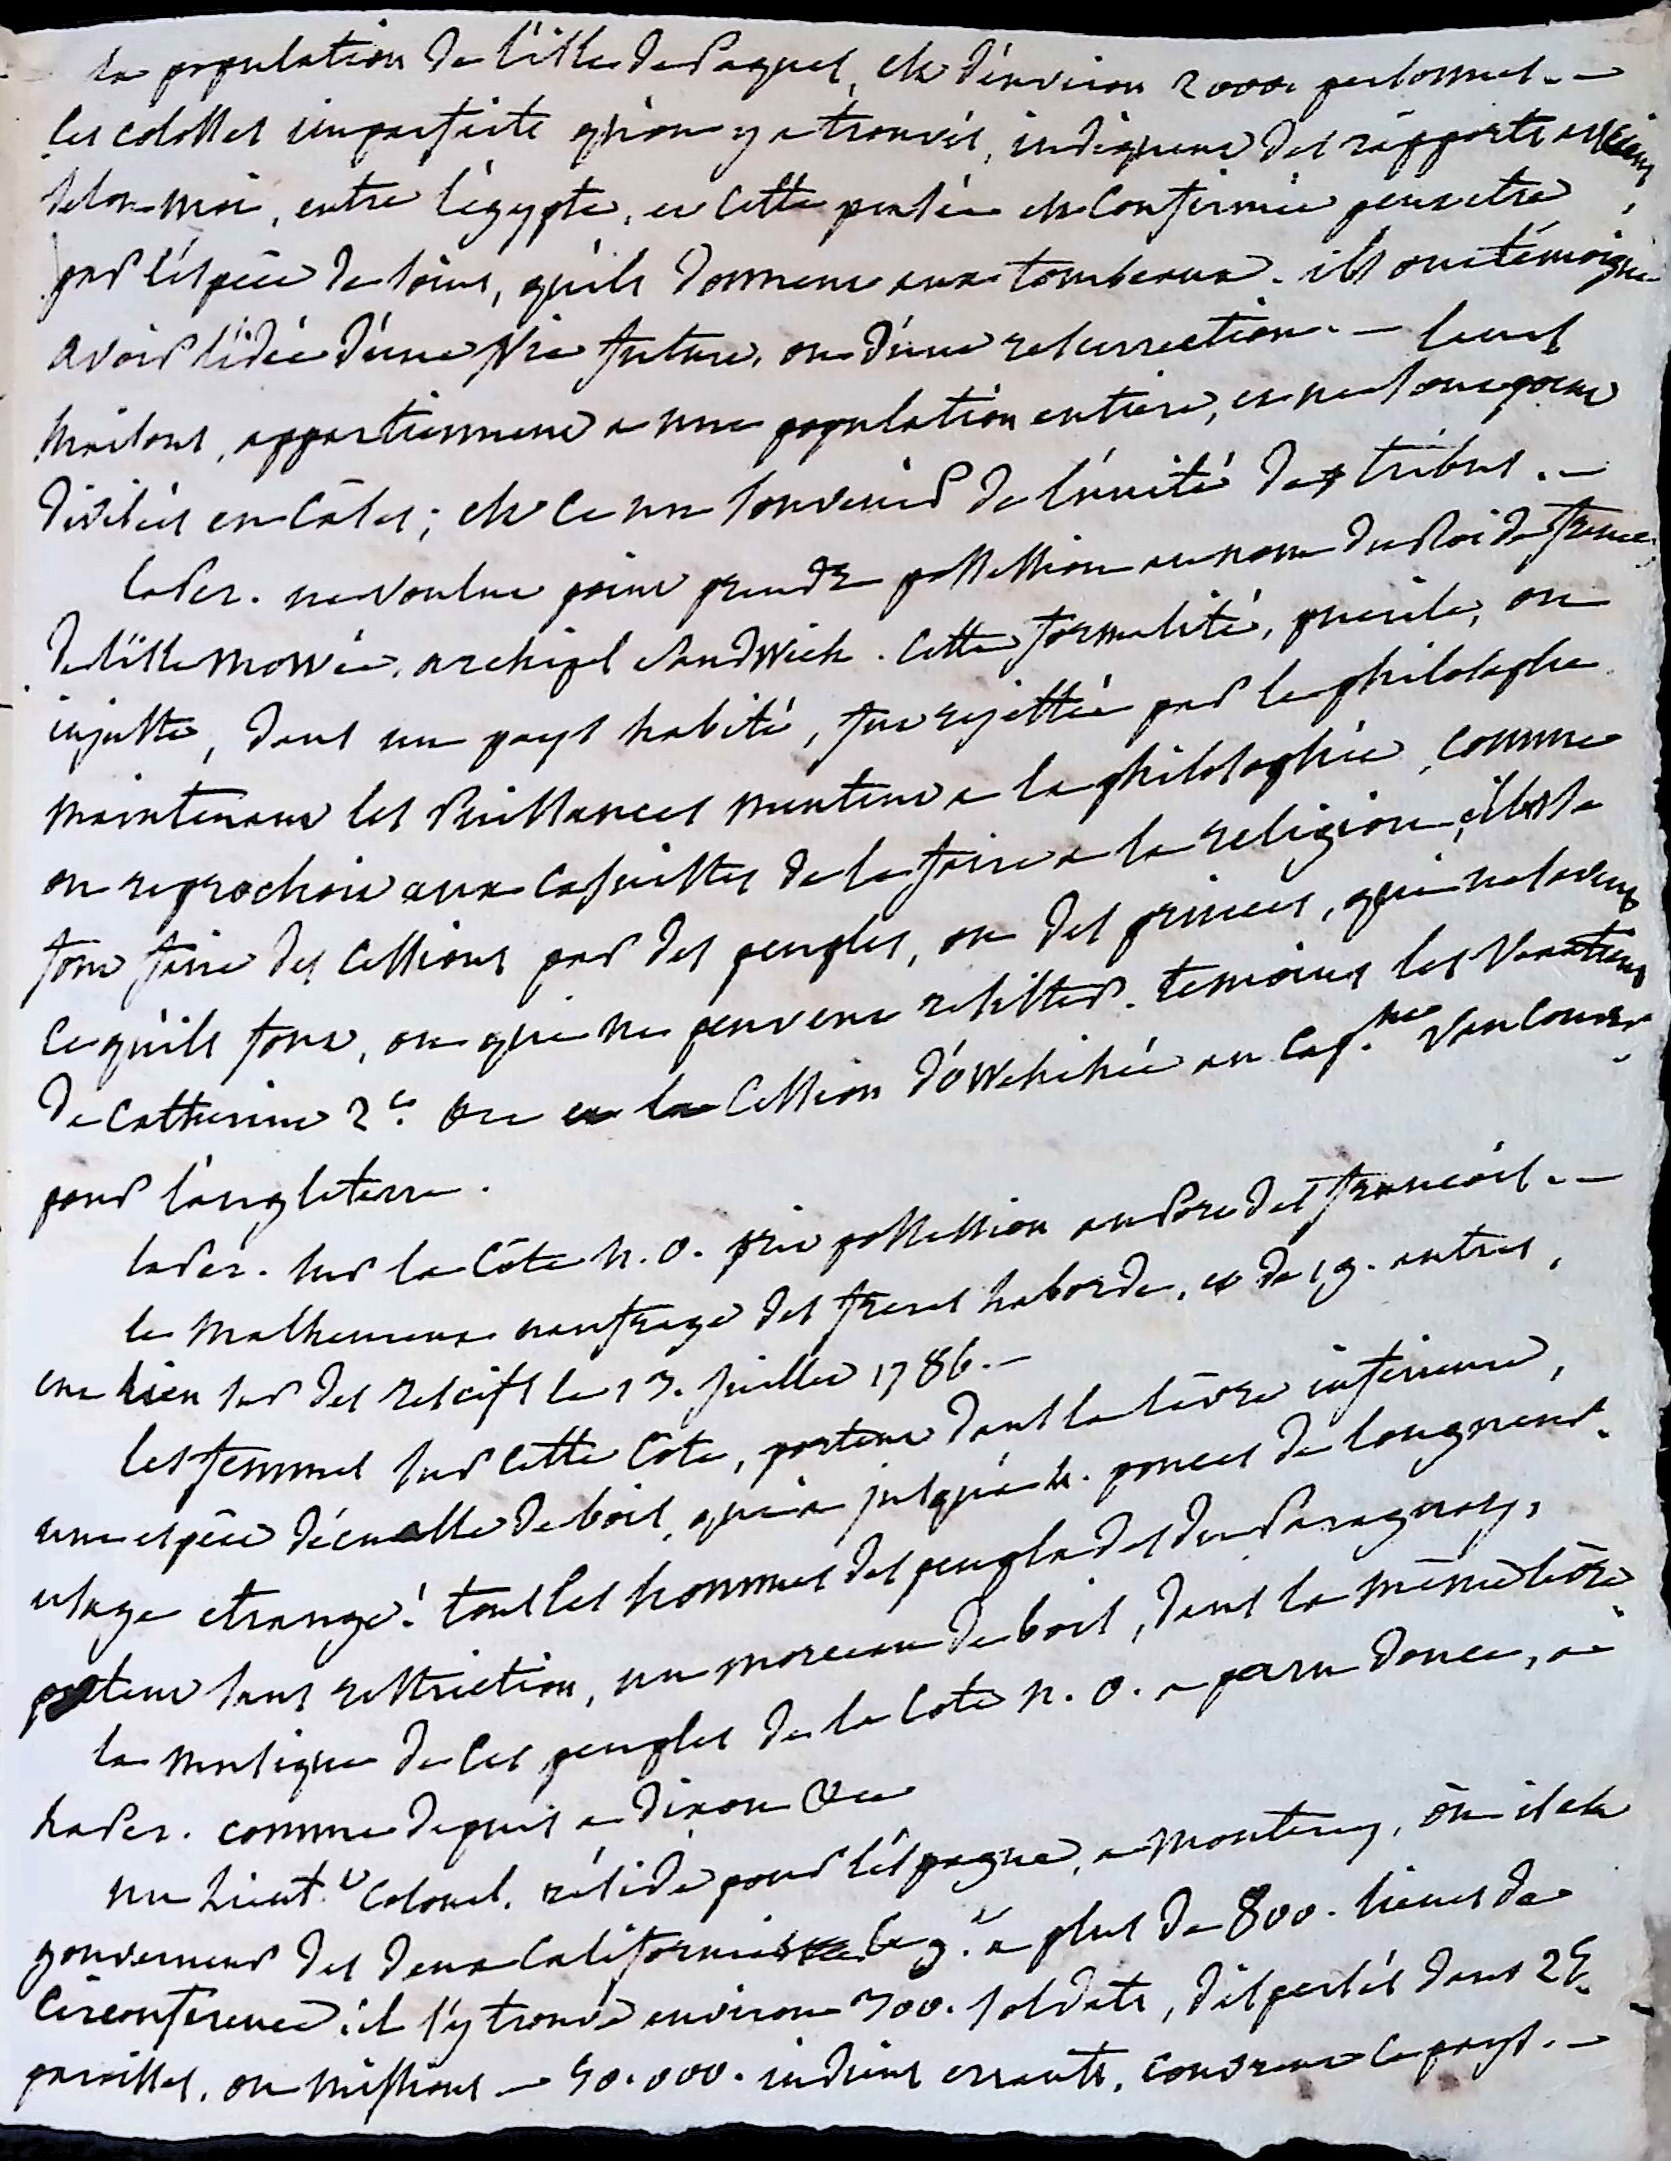 la population de l'isle de Paques, est d'environ 2000. personnes. —
les colosses imparfaits qu'on y a trouvés, indiquent des rapports anciens
selon moi, entre l'égypte, et cette pensée est confirmée peut etre
par l'éspèce de soins, qu'ils donnent aux tombeaux. ils ont témoigné
avoir l'idée d'une vie future, ou d'une resurrection. — leurs
maisons, appartiennent a une population entiere, et ne sont point
divisées en cases; est ce un souvenir de l'unité des tribus. —
laPer. ne voulut point prendre possession au nom du Roi de france,
de l'isle mowée, archipel sandwich. cette formalité, puerile, ou
injuste, dans un pays habité, fut rejettée par le philosophe
maintenant les Puissances mentent a la philosophie, comme
on reprochoit aux casuistes de le faire a la religion, elles se
font faire des cessions par des peuples, ou des princes, qui ne savent
ce qu'ils font, ou qui ne peuvent resister. temoins les
de catherine 2e. ou la cession d'owhihée au Cap.ne VanCouver
pour l'angleterre.
laPer. sur la côte N. O. prit possession au Port des françois. —
le malheureux naufrage des freres laborde, et de 19. autres,
eut lieu sur des rescifs le 13. juillet 1786. —
les femmes sur cette côte, portent dans la lèvre inferieure,
une espèce d'écuelle de bois, qui a jusqu'a 4. pouces de longueur.
usage etrange! tous les hommes des peuplades du Paraguay,
portent sans restriction, un morceau de bois, dans la même lèvre.
la musique de ces peuples de la cote N. O. a paru douce, a
laPer. comme depuis a dixon &c
un Lieut.t colonel, réside pour l'éspagne, a monterey, ou il est
gouverneur des deux californies. le g.t a plus de 800. lieues de
circonference: il s'y trouve environ 300. soldats, dispersés dans 25.
paroisses, ou missions — 50.000. indiens errants, couvrent le pays. —